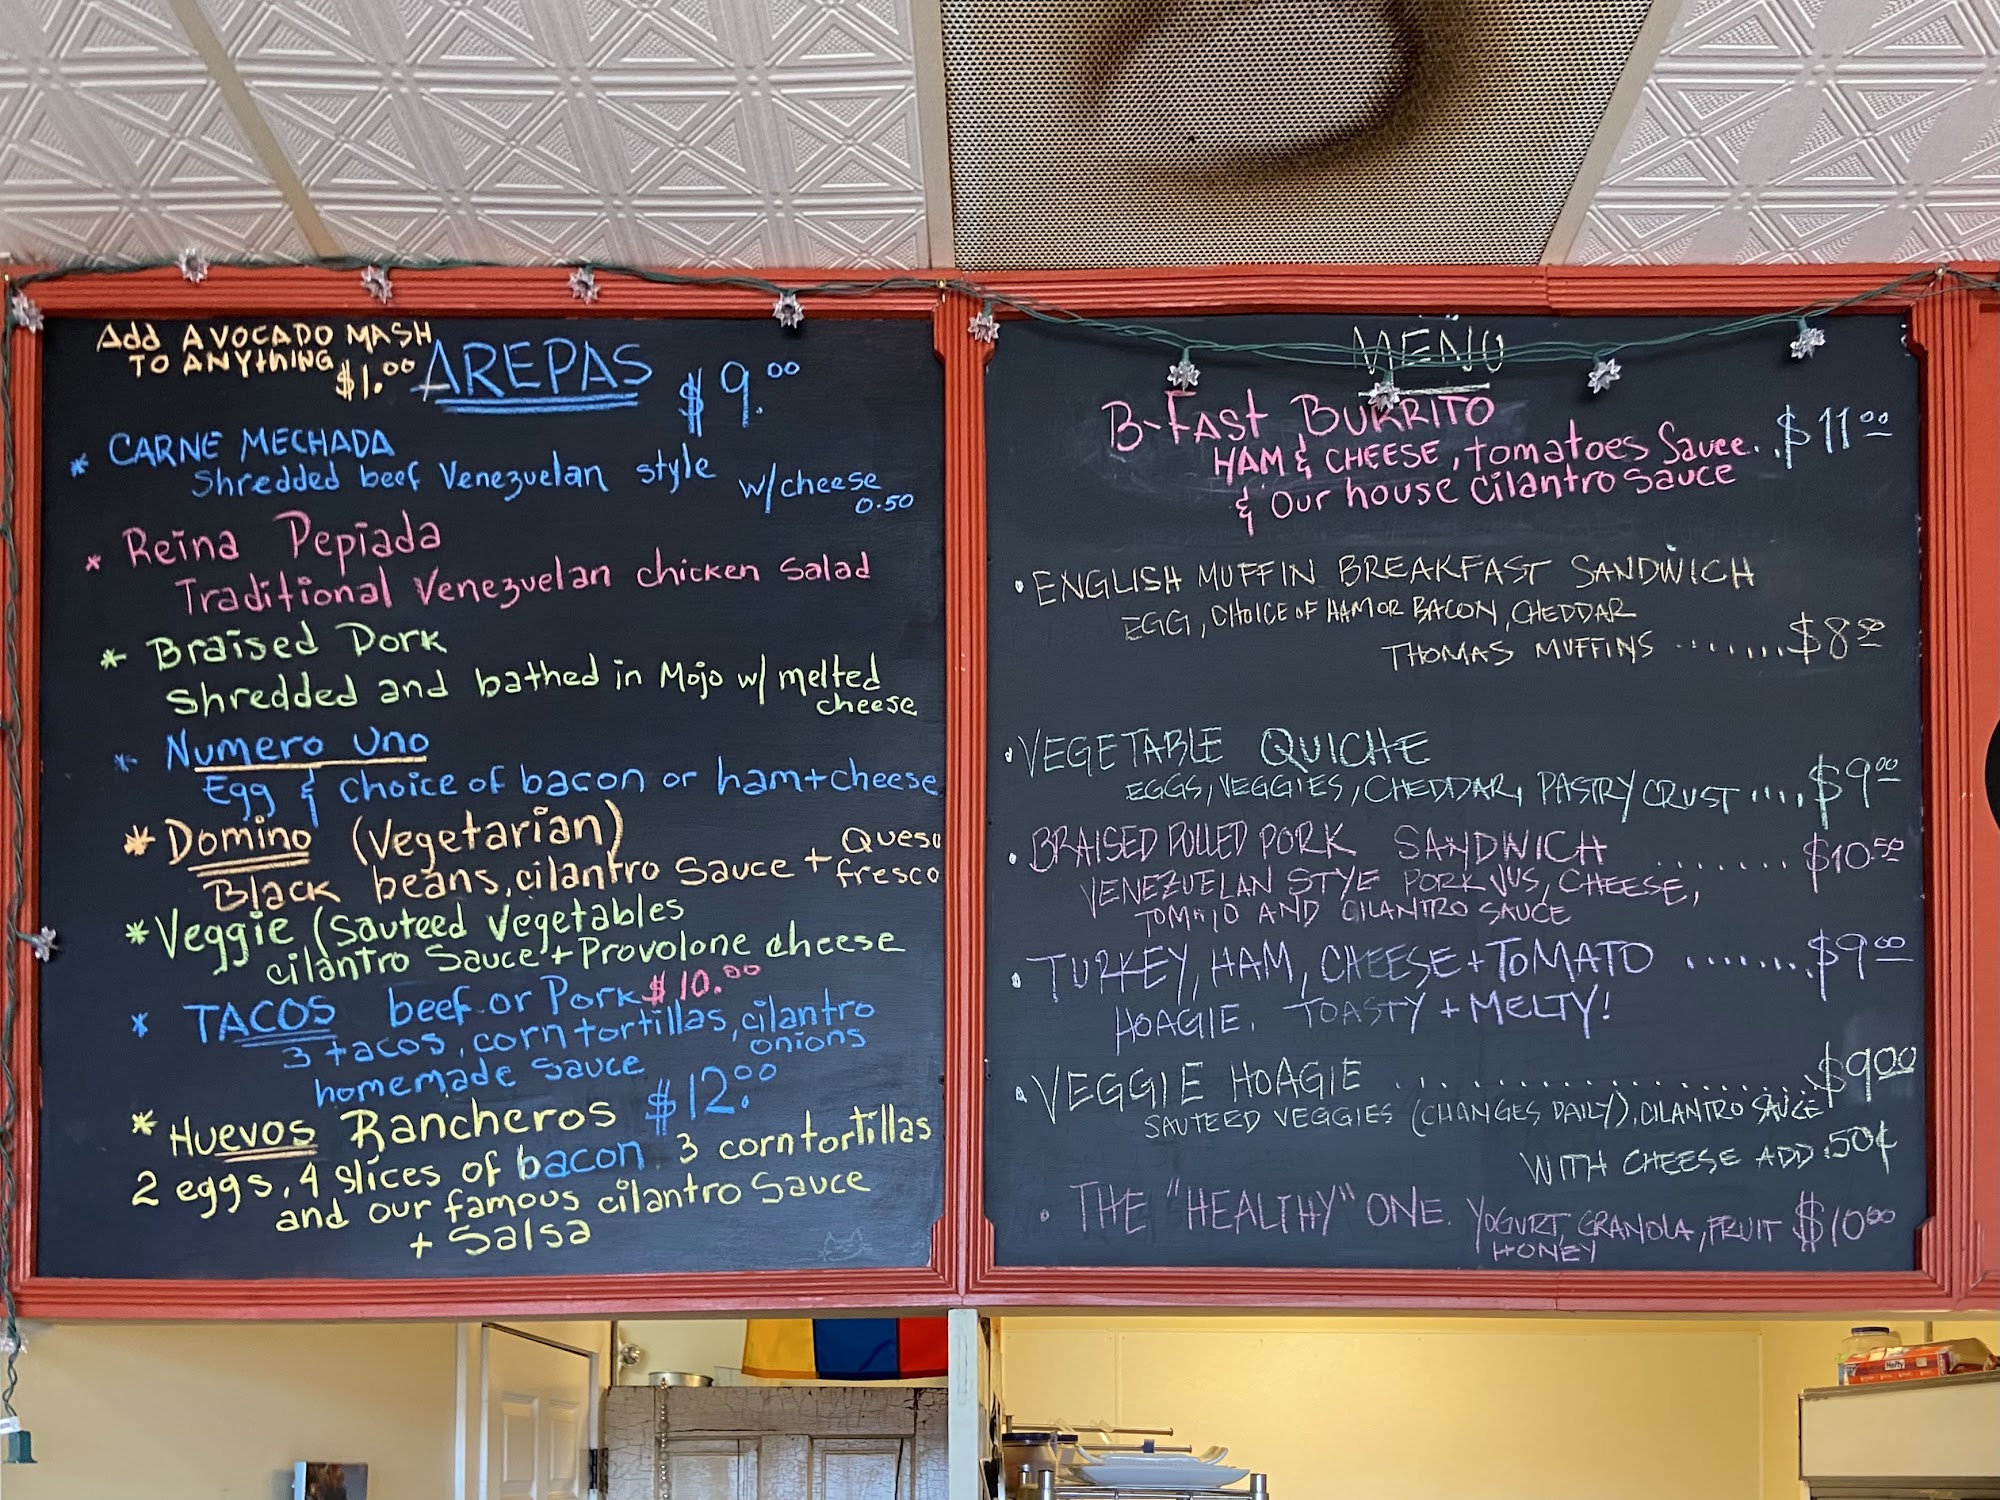 Add AVOCADO MASH
TO ANYTHING
$1.00
AREPAS $9.00
* CARNE MECHADA
Shredded beef Venezuelan style w/cheese
0.50
* Reina Pepiada
Traditional Venezuelan chicken Salad
* Braised Pork
Shredded and bathed in Mojo w/ melted
cheese
* Numero Uno
Egg & choice of bacon or ham+cheese
* Domino (Vegetarian)
Black beans, cilantro Sauce + Queso
fresco
* Veggie (Sauteed Vegetables
cilantro Sauce + Provolone cheese
* TACOS beef or Pork $10.00
3 tacos, corn tortillas, cilantro
onions
homemade Sauce
* Huevos Rancheros $12.00
2 eggs, 4 slices of bacon. 3 corn tortillas
and our famous cilantro Sauce
+ Salsa
MENU
B-Fast BURRITO
HAM & CHEESE, tomatoes Sauce.. $11.00
& Our house cilantro sauce
• ENGLISH MUFFIN BREAKFAST SANDWICH
EGG, CHOICE OF HAM OR BACON, CHEDDAR
THOMAS MUFFINS ....... $8.50
• VEGETABLE QUICHE
EGGS, VEGGIES, CHEDDAR, PASTRY CRUST .... $9.00
• BRAISED PULLED PORK SANDWICH ....... $10.50
VENEZUELAN STYE PORK JUS, CHEESE,
TOMATO AND CILANTRO SAUCE
• TURKEY, HAM, CHEESE + TOMATO ........ $9.00
HOAGIE. TOASTY + MELTY!
• VEGGIE HOAGIE .................. $9.00
SAUTEED VEGGIES (CHANGES DAILY), CILANTRO SAUCE
WITH CHEESE ADD .50¢
• THE "HEALTHY" ONE. YOGURT, GRANOLA, FRUIT $10.00
HONEY
Hefty